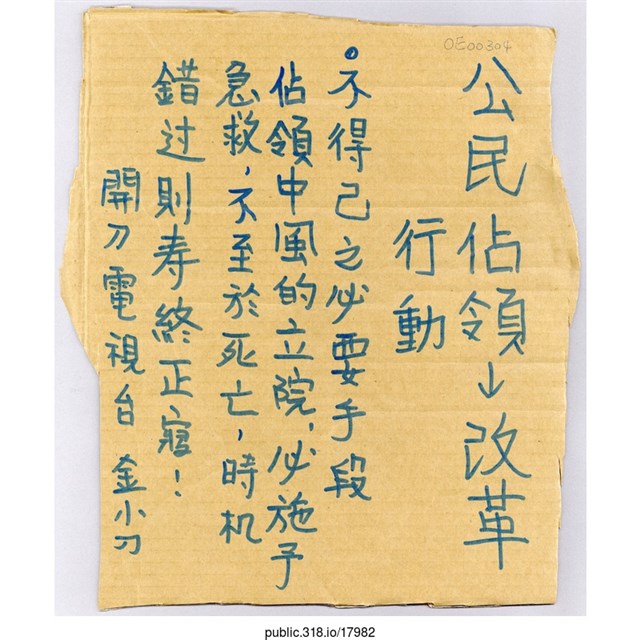 OE00304
公民佔領→改革
行動
。不得已之必要手段
佔領中風的立院,必施予
急救,不至於死亡,時机
錯过則寿終正寢!
開刀電視台 金小刀
public.318.io/17982